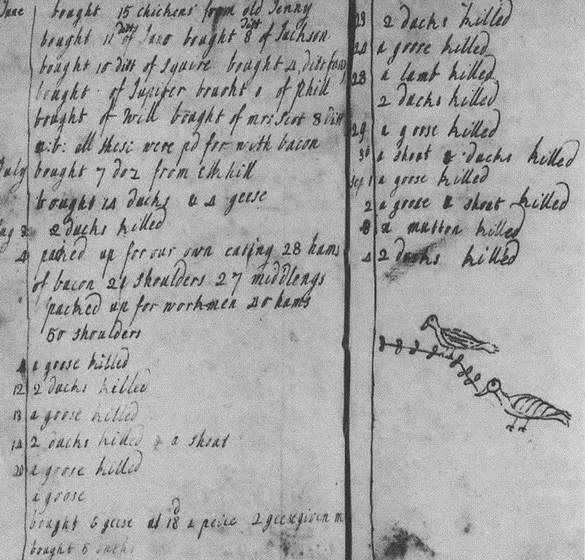 June bought 15 chickens from old Jenny
bought 11 ditt of Juno bought 8 ditt of Jackson
bought 10 ditt of Squire bought 4 ditt
bought of Jupiter bought of phill
bought of Will bought of mrs Scot 8 ditt
all these were pd for with bacon
July bought 7 doz from elkhill
bought 14 ducks & 4 geese
2 ducks killed
4 packed up for our own eating 28 hams
of bacon 21 shoulders 27 middlengs
packed up for workmen 40 hams
50 shoulders
4 a goose killed
12 2 ducks killed
13 a goose killed
14 2 ducks killed & a shoat
20 a goose killed
a goose
bought 6 geese at 18d a peice 2 geese given m
bought 5
23 2 ducks killed
24 a goose killed
28 a lamb killed
2 ducks killed
29 a goose killed
30 a shoat & ducks killed
sep 1 a goose killed
2 a goose & shoat killed
a mutton killed
4 2 ducks killed